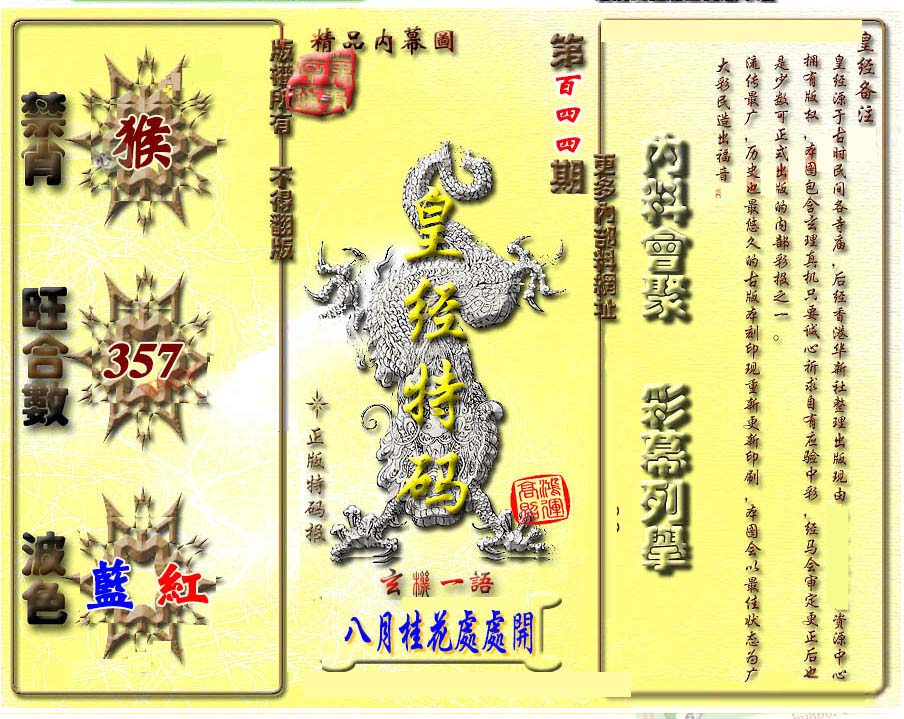 精品内幕圖
第百四四期
禁肖
猴
旺合數
357
波色
藍 紅
版權所有 不得翻版
皇经特码
正版特码报
鴻運高照
玄機一語
八月桂花處處開
更多內部料網址
内料會聚 彩幕列舉
皇经备注
皇经源于古时民间各寺庙，后经香港华新社整理出版现由 资源中心
拥有版权，本图包含玄理真机只要诚心祈求自有应验中彩，经马会审定更正后也
是少数可正式出版的内部彩报之一。
流传最广，历史也最悠久的古版本刻印现重新更新印刷，本图会以最佳状态为广
大彩民造出福音